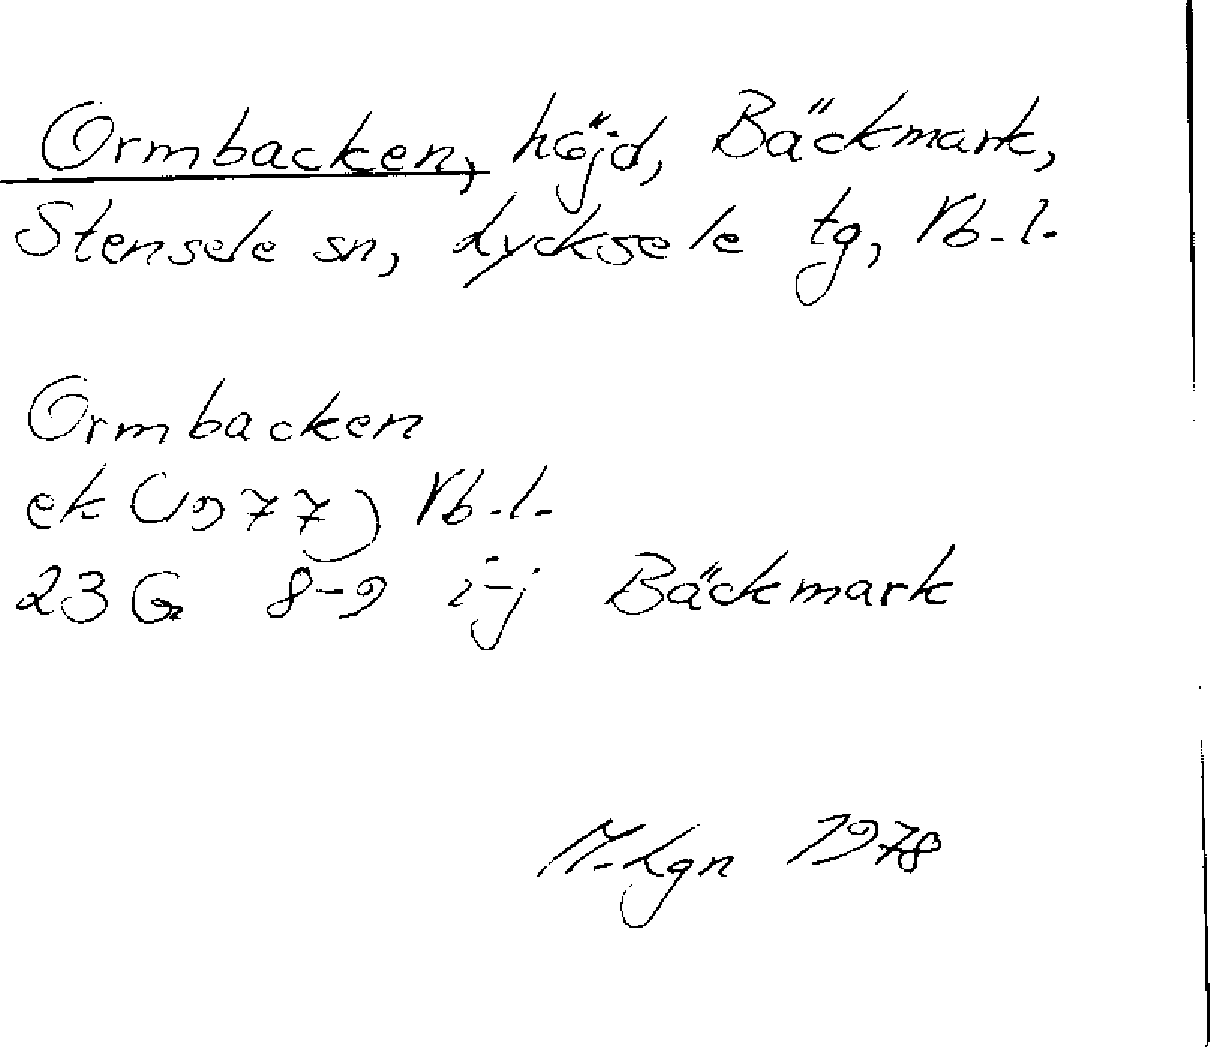 Ormbacken, höjd, Bäckmark,
Stensele sn, Lycksele tg, Vb.l.
Ormbacken
ek (1977) Vb.l.
23 G 8-9 i-j Bäckmark
M.Lgn 1978